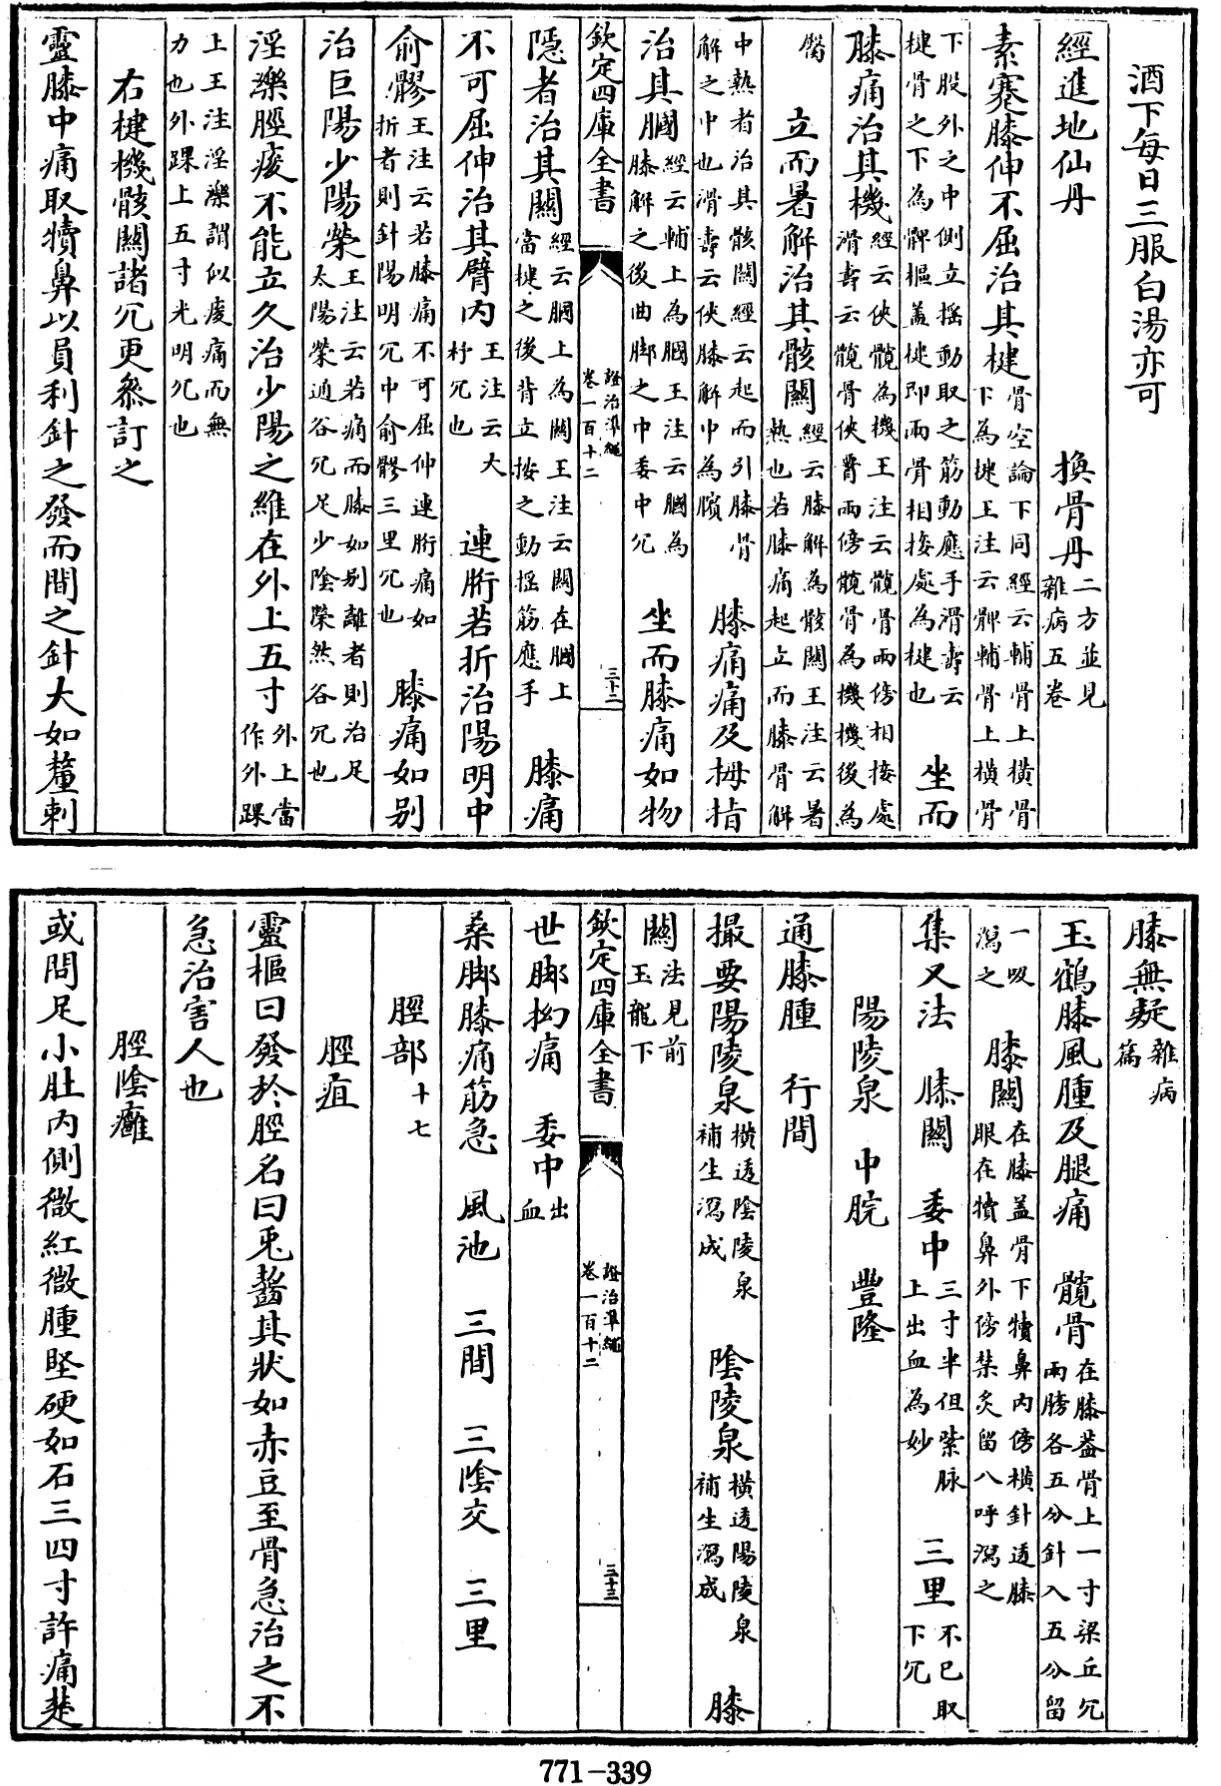 酒下每日三服白湯亦可
經進地仙丹　換骨丹二方並見雜病五卷
素蹇膝伸不屈治其楗骨空論下同經云輔骨上橫骨下為楗王注云髀輔骨上橫骨
下股外之中側立摇動取之筋動應手滑壽云楗骨之下為髀樞蓋楗即兩骨相接處為楗也　坐而
膝痛治其機經云俠髖為機王注云髖骨兩傍相接處滑壽云髖骨俠臀兩傍髖骨為機機後為
臀　立而暑解治其骸關經云膝解為骸關王注云暑熱也若膝痛起立而膝骨解
中熱者治其骸關經云起而引膝骨解之中也滑壽云俠膝解中為臏　膝痛痛及拇指
治其膕經云輔上為膕王注云膕為膝解之後曲脚之中委中穴　坐而膝痛如物
欽定四庫全書　證治準繩卷一百十二　三十二
隱者治其關經云膕上為關王注云關在膕上當楗之後背立按之動摇筋應手　膝痛
不可屈伸治其臂内王注云大杼穴也　連胻若折治陽明中
俞髎王注云若膝痛不可屈伸連胻痛如折者則針陽明穴中俞髎三里穴也　膝痛如别
治巨陽少陽榮王注云若痛而膝如别離者則治足太陽滎通谷穴足少陰滎然谷穴也
淫濼脛痠不能立久治少陽之維在外上五寸外上當作外踝
上王注淫濼謂似痠痛而無力也外踝上五寸光明穴也
右楗機骸關諸穴更叅訂之
靈膝中痛取犢鼻以員利針之發而間之針大如氂刺
膝無疑雜病篇
玉鶴膝風腫及腿痛　髖骨在膝蓋骨上一寸梁丘穴兩膀各五分針入五分留
一吸瀉之　膝關在膝蓋骨下犢鼻内傍橫針透膝眼在犢鼻外傍禁灸留八呼瀉之
集又法　膝關　委中三寸半但紫脉上出血為妙　三里不已取下穴
陽陵泉　中脘　豐隆
通膝腫　行間
撮要陽陵泉橫透陰陵泉補生瀉成　陰陵泉橫透陽陵泉補生瀉成　膝
關法見前玉龍下
欽定四庫全書　證治準繩卷一百十二　三十三
世脚拗痛　委中出血
桑脚膝痛筋急　風池　三間　三陰交　三里
脛部十七
脛疽
靈樞曰發於脛名曰兎齧其狀如赤豆至骨急治之不
急治害人也
脛陰癰
或問足小肚内側微紅微腫堅硬如石三四寸許痛楚
771-339